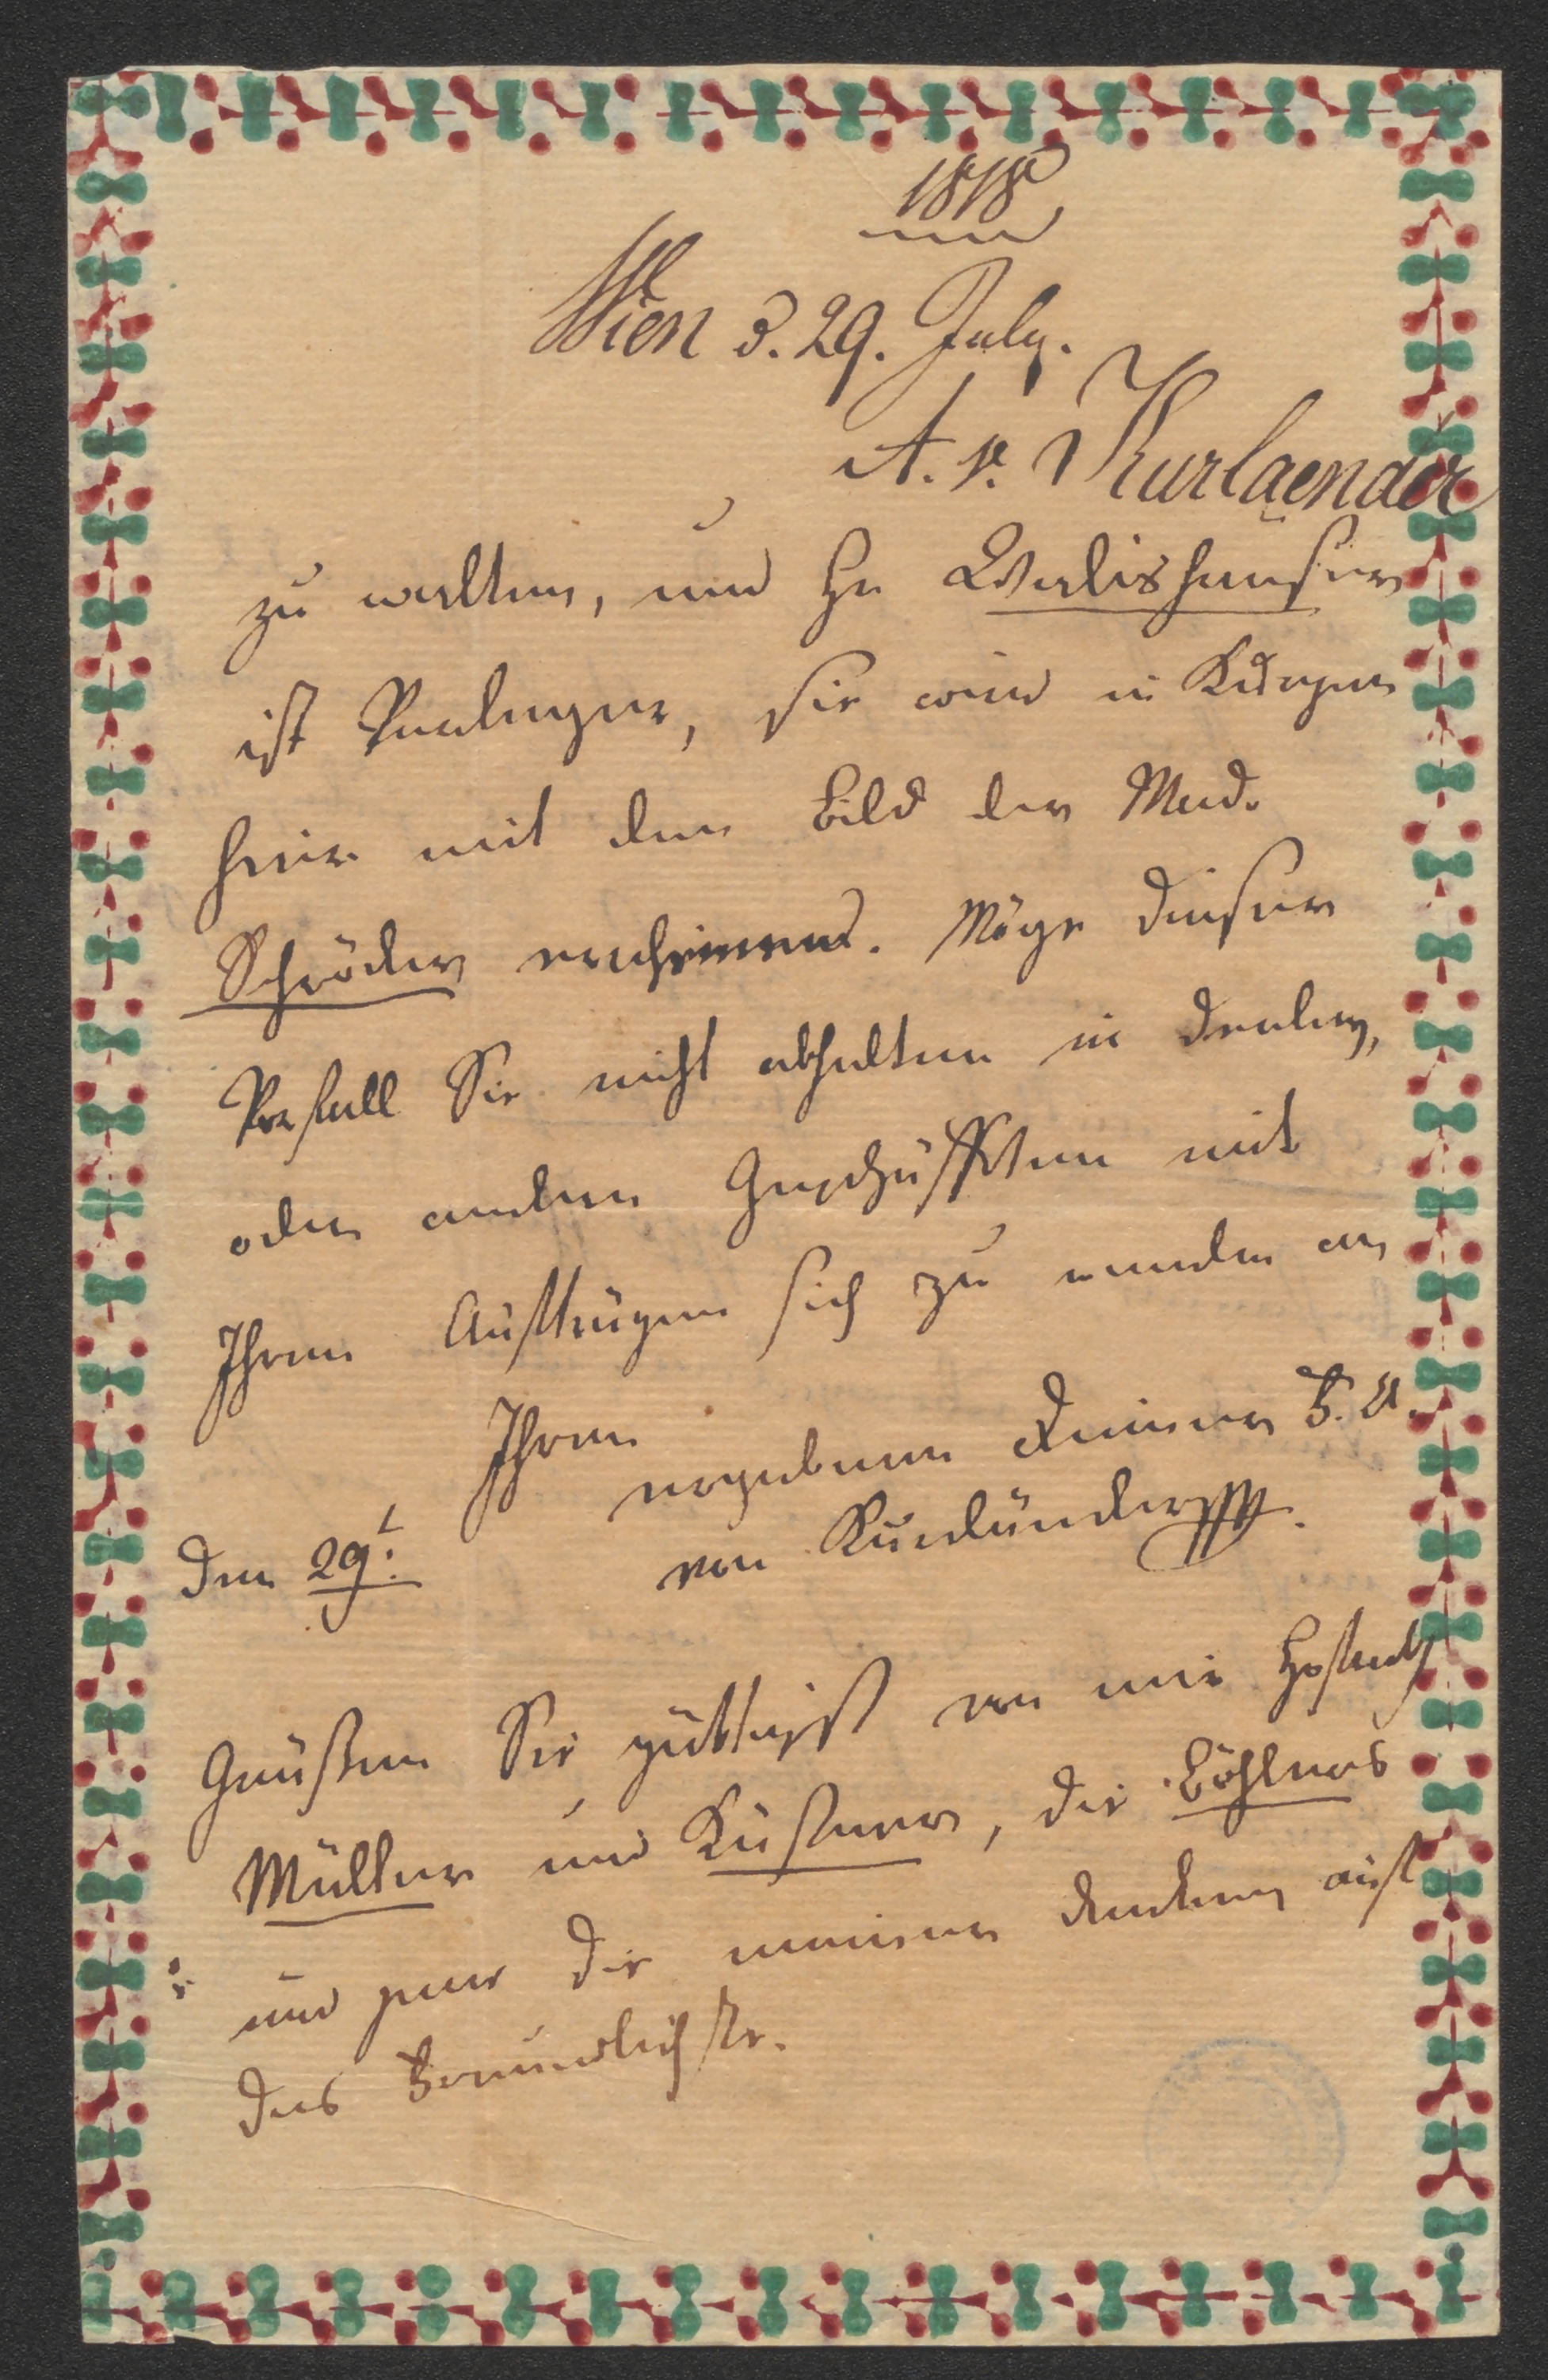 1818
Wien d. 29. July.
A. v. Kurlaender
zu walten, und Hr Wallishausser
ist Verleger, sie wird in Kurzen
hier mit dem Bild der Mad.
Schröder erscheinen. Möge dieser
Vorfall Sie nicht abhalten in
oder andern Geschäfften mit
Ihren Aufträgen sich zu wenden an
Ihren
ergebenen Diener F. A.
von Kurländer
den 29t.
Grüßen Sie gütigst von mir Hofrath
Müllner und Küstner, die
und die meiner denken auf
das Freundlichste.